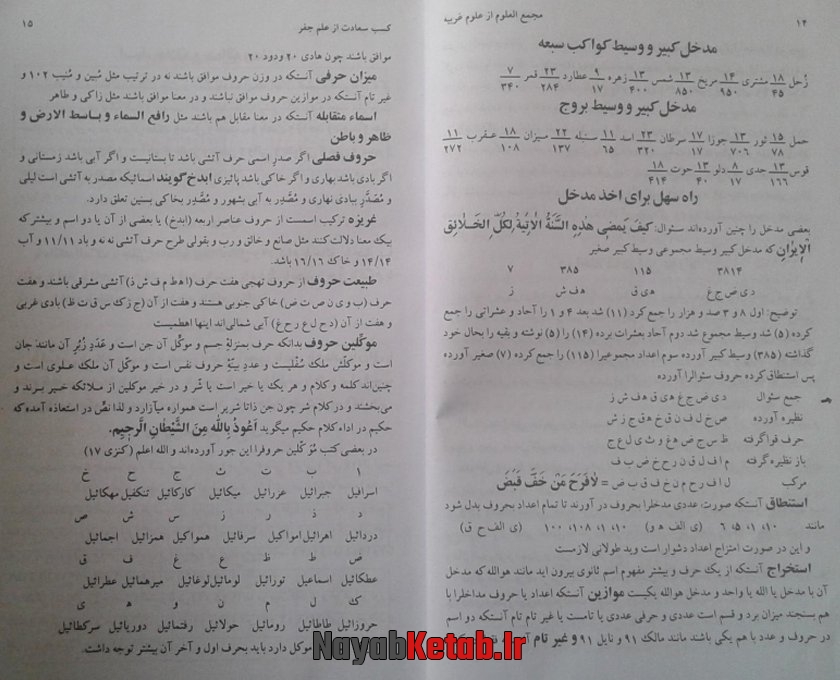 ۱۴ مجمع العلوم از علوم غریبه
مدخل کبیر و وسیط کواکب سبعه
زحل ۱۸/۴۵ مشتری ۱۴/۹۵۰ مریخ ۱۳/۸۵۰ شمس ۱۳/۴۰۰ زهره ۹/۱۷ عطارد ۲۳/۲۸۴ قمر ۷/۳۴۰
مدخل کبیر و وسیط بروج
حمل ۱۵/۷۸ ثور ۱۳/۷۰۶ جوزا ۱۷/۱۷ سرطان ۲۳/۳۲۰ اسد ۱۱/۶۵ سنبله ۲۲/۱۳۷ میزان ۱۸/۱۰۸ عقرب ۱۱/۲۷۲
قوس ۱۳/۱۶۶ جدی ۸/۱۷ دلو ۱۳/۴۰ حوت ۱۸/۴۱۴
راه سهل برای اخذ مدخل
بعضی مدخل را چنین آورده‌اند سئوال: کیف یمضی هذه السنة الاتیة لکل الخلائق
الایران که مدخل کبیر وسیط مجموعی وسیط کبیر صغیر
۳۸۱۴ ۱۱۵ ۳۸۵ ۷
د ی ض ج غ ه ی ق ه ف ش ز
توضیح: اول ۸ و ۳ صد و هزار را جمع کرد (۱۱) شد بعد ۴ و ۱ را آحاد و عشراتی را جمع
کرده (۵) شد وسیط مجموع شد دوم آحاد بعشرات برده (۱۴) را (۵) نوشته و بقیه را بحال خود
گذاشته (۳۸۵) وسیط کبیر آورده سوم اعداد مجموعیرا (۱۱۵) را جمع کرده (۷) صغیر آورده
پس استنطاق کرده حروف سئوالرا آورده
جمع سئوال د ی ض ج غ ه ی ق ه ف ش ز
نظیره آورده ص خ ل ف ن ق خ ه ق ج ز ش
حرف قوا گرفته ظ س ج ض ه غ و ث ی ل ع ج
باز نظیره گرفته م ا ف ل ق ن ر ح خ ض ب ف
مرکب ل ا ف ر ح م ن خ ف ق ب ض = لافرح من خف قبض
استنطاق آنستکه صورت، عددی مدخلرا بحروف در آورند تا تمام اعداد بحروف بدل شود
مانند ۱۰، ۱، ۵، ۶ (ی الف ه و) ۱۰، ۱، ۱۰۸، ۱۰۰ (ی الف ح ق)
و این در صورت امتزاج اعداد دشوار است وبد طولانی لازمست
استخراج آنستکه از یک حرف و بیشتر مفهوم اسم ثانوی بیرون آید مانند هوالله که مدخل
آن با مدخل یا الله یا واحد و مدخل هوالله یکیست موازین آنستکه اعداد یا حروف مداخلرا با
هم بسنجند میزان برد و قسم است عددی و حرفی عددی یا تامست یا غیر تام تام آنستکه دو اسم
در حروف و عدد با هم یکی باشند مانند مالک ۹۱ و نایل ۹۱ و غیر تام
کسب سعادت از علم جفر ۱۵
موافق باشند چون هادی ۲۰ ودود ۲۰
میزان حرفی آنستکه در وزن حروف موافق باشند نه در ترتیب مثل مُبین و مُنیب ۱۰۲ و
غیر تام آنستکه در موازین حروف موافق نباشند و در معنا موافق باشند مثل زاکی و طاهر
اسماء متقابله آنستکه در معنا مقابل هم باشند مثل رافع السماء و باسط الارض و
ظاهر و باطن
حروف فصلی اگر صدر اسمی حرف آتشی باشد تا بستانیست و اگر آبی باشد زمستانی و
اگر بادی باشد بهاری و اگر خاکی باشد پائیزی ابدخ گویند اسمائیکه مصدر به آتشی است لیلی
و مُصَدَّر ببادی نهاری و مُصَدَّر به آبی بشهور و مُصَدَّر بخاکی بسنین تعلق دارد.
غریزه ترکیب اسمست از حروف عناصر اربعه (ابدخ) یا بعضی از آن یا دو اسم و بیشتر که
بیک معنا دلالت کنند مثل صانع و خالق و رب و بقولی طرح حرف آتشی نه نه و باد ۱۱/۱۱ و آب
۱۴/۱۴ و خاک ۱۶/۱۶ باشد.
طبیعت حروف از حروف تهجی هفت حرف (ا ه ط م ف ش ذ) آتشی مشرقی باشند و هفت
حرف (ب و ی ن ص ت ض) خاکی جنوبی هستند و هفت از آن (ج ز ک س ق ث ظ) بادی غربی
و هفت از آن (د ح ل ع ر خ غ) آبی شمالی‌اند اینها اهطمیست
موکلین حروف بدانکه حرف بمنزلهٔ جسم و موکّل آن جن است و عَدَدِ زُبُرِ آن مانند جان
است و موکلش ملک سُفلیست و عدد بیّنهٔ حروف نفس است و موکل آن ملک علوی است و
چنین‌اند کلمه و کلام و هر یک یا خیر است یا شّر و در خیر موکلین از ملائکه خبر برند و
می‌بخشند و در کلام شر چون جن ذاتا شریر است همواره میآزارد و لذا نصّ در استعاذه آمده که
حکیم در اداء کلام حکیم میگوید اعوذ بالله من الشیطان الرجیم.
در بعضی کتب مُوَ کّلین حروفرا این جور آورده‌اند و الله اعلم (کنزی ۱۷)
ا ب ت ث ج ح خ
اسرافیل جبرائیل عزرائیل میکائیل کارکائیل تنکفیل مهکائیل
د ذ ر ز س ش ص
دردائیل اهرائیل امواکیل سرفائیل همواکیل همزائیل اجمائیل
ض ط ظ ع غ ف ق
عطکائیل اسماعیل توزائیل لومائیل لوغائیل میرهمائیل عطرائیل
ک ل م ن و ه ی
حروزائیل طاطائیل رومائیل حولائیل رفتمائیل دوریائیل سرکطائیل
موکل دارد باید بحرف اول و آخر آن بیشتر توجه داشت.
NayabKetab.Ir